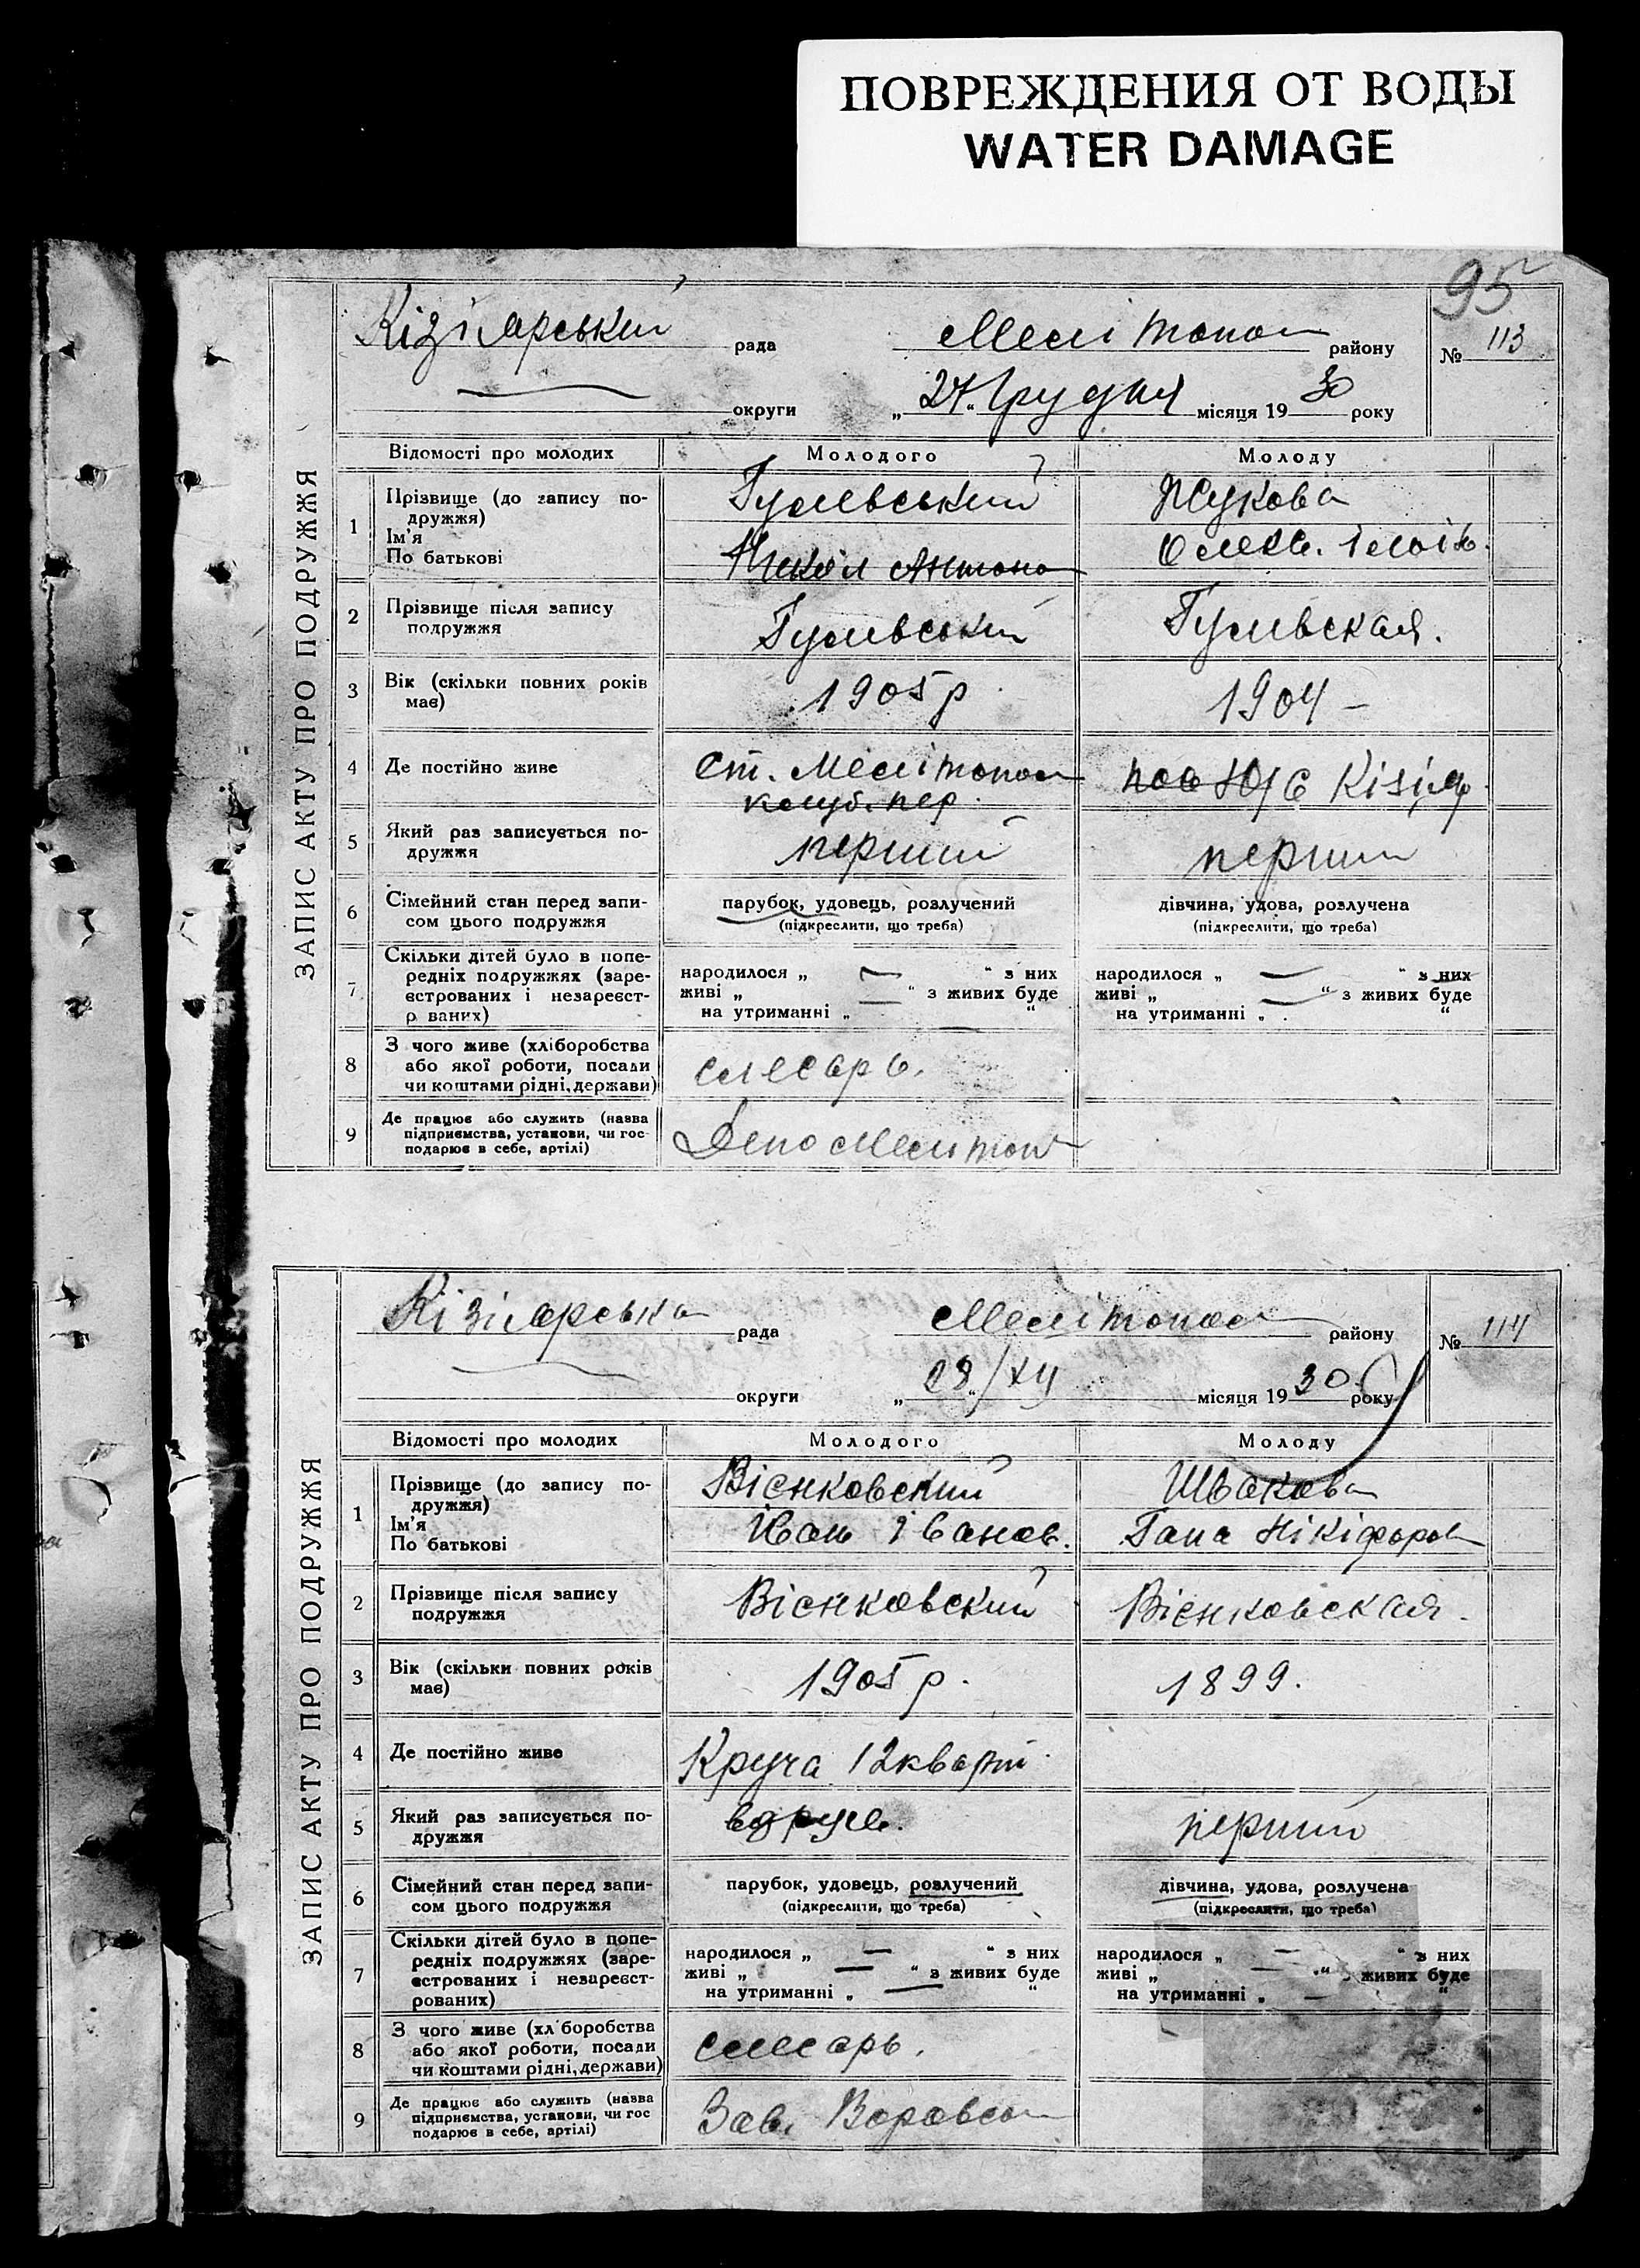 ПОВРЕЖДЕНИЯ ОТ ВОДЫ
WATER DAMAGE
95
ЗАПИС АКТУ ПРО ПОДРУЖЖЯ
Кізіярський рада Мелітопол району № 113
округи „ 27 “ Грудня місяця 19 30 року
Відомості про молодих Молодого Молоду
1 Прізвище (до запису по-
дружжя)
Ім'я
По батькові
Гулевський Жукова
Микол Антоно
2 Прізвище після запису
подружжя
Гуливський Гуливская.
3 Вік (скільки повних років
має)
1905 р 1904 –
4 Де постійно живе
ст. Мелітопол
клуб. пер. пос Кізіяр.
5 Який раз записується по-
дружжя
перший перший
6 Сімейний стан перед запи-
сом цього подружжя
парубок, удовець, розлучений
(підкреслити, що треба)
дівчина, удова, розлучена
(підкреслити, що треба)
7 Скільки дітей було в попе-
редніх подружжях (заре-
єстрованих і незареєст-
р ваних)
народилося „ — “ з них
живі „ — “ з живих буде
на утриманні „ — “
народилося „ — “ з них
живі „ — “ з живих буде
на утриманні „ “
8 З чого живе (хліборобства
або якої роботи, посади
чи коштами рідні, держави)
слесарь.
9 Де працює або служить (назва
підприємства, установи, чи гос-
подарює в себе, артілі)
Депо Мелитоп
ЗАПИС АКТУ ПРО ПОДРУЖЖЯ
Кізіярська рада Мелітопол району № 114
округи „ 28 “ /XII місяця 19 30 року
Відомості про молодих Молодого Молоду
1 Прізвище (до запису по-
дружжя)
Ім'я
По батькові
Вієнковский Швакова
Іван Іванов. Гана Нікіфоров
2 Прізвище після запису
подружжя
Вієнковский Вієнковская.
3 Вік (скільки повних років
має)
1905 р. 1899.
4 Де постійно живе
Круча 12 кварт
5 Який раз записується по-
дружжя
перший
6 Сімейний стан перед запи-
сом цього подружжя
парубок, удовець, розлучений
(підкреслити, що треба)
дівчина, удова, розлучена
(підкреслити, що треба)
7 Скільки дітей було в попе-
редніх подружжях (заре-
єстрованих і незареєст-
рованих)
народилося „ — “ з них
живі „ — “ з живих буде
на утриманні „ — “
народилося „ — “ з них
живі „ — “ з живих буде
на утриманні „ — “
8 З чого живе (хл боробства
або якої роботи, посади
чи коштами рідні, держави)
слесарь.
9 Де працює або служить (назва
підприємства, установи, чи гос
подарює в себе, артілі)
Зав. Воровск